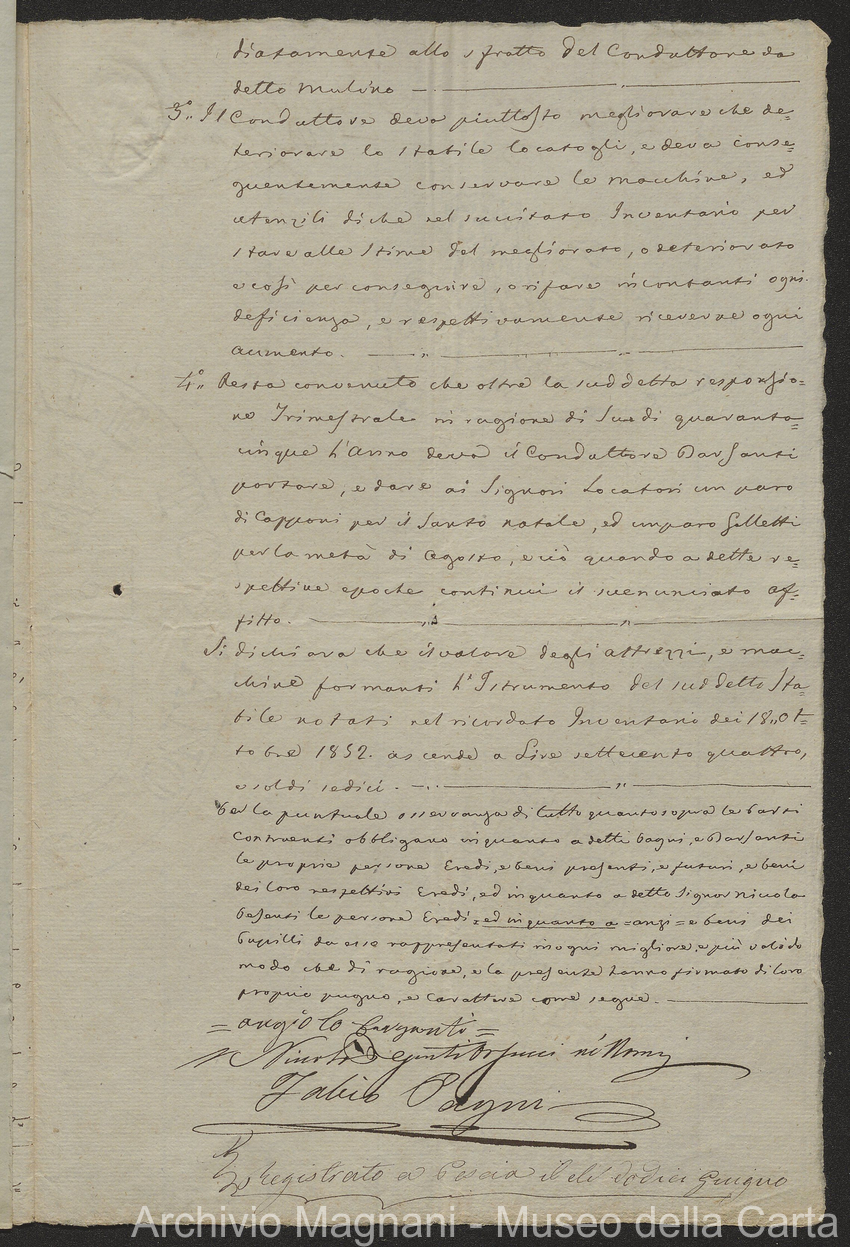 diatamente allo sfratto del Conduttore da
detto Mulino —
3.° Il Conduttore deva piuttosto megliorare che de=
teriorare lo stabile locatogli, e deva conse=
guentemente conservare le macchine, ed
utenzili di che nel succitato Inventario per
stare alle stime del megliorato, o deteriorato
e così per conseguire, o rifare incontanti ogni
deficienza, e respettivamente riceverne ogni
aumento. —
4.° Resta convenuto che oltre la suddetta responsio=
ne Trimestrale in ragione di Scudi quaranta=
cinque l'Anno deva il Conduttore Barsanti
portare, e dare ai Signori Locatori un paro
di Capponi per il Santo Natale, ed un paro Galletti
per la metà di Agosto, e ciò quando a dette re=
spettive epoche continui il suenunciato af=
fitto. —
Si dichiara che il valore degli attrezzi, e mac=
chine formanti l'Istrumento del suddetto Sta=
bile notati nel ricordato Inventario dei 18,, Ot=
tobre 1852. ascende a Lire settecento quattro,
e soldi sedici. —
Per la puntuale osservanza di tutto quanto sopra le Parti
Contraenti obbligano in quanto a detti Pagni, e Barsanti
le proprie persone Eredi, e beni presenti, e futuri, e beni
dei loro respettivi Eredi, ed in quanto a detto Signor Nicola
le persone Eredi = ed in quanto a = anzi = e beni dei
Pupilli da esso rappresentati in ogni migliore, e più valido
modo che di ragione, e la presente hanno firmato di loro
proprio pugno, e Carattere come segue. —
= Angiolo Barsanti =
Nicola
Fabio Pagni
Registrato a Pescia il dì dodici Giugno
Archivio Magnani - Museo della Carta